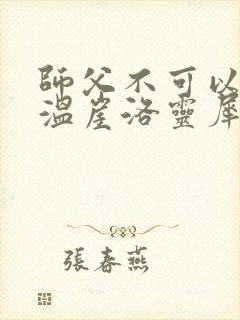 師父不可以
溫崖洛靈犀
張春燕